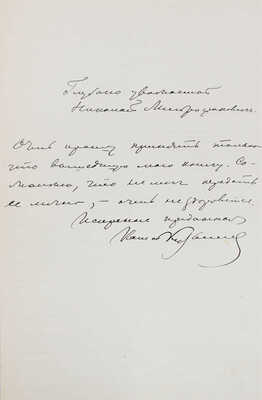 Глубоко уважаемый
Николай Митрофанович.
Очень прошу принять только
что вышедшую мою книгу. Со-
жалею, что не мог передать
ее лично, – очень нездоровится.
Искренне преданный